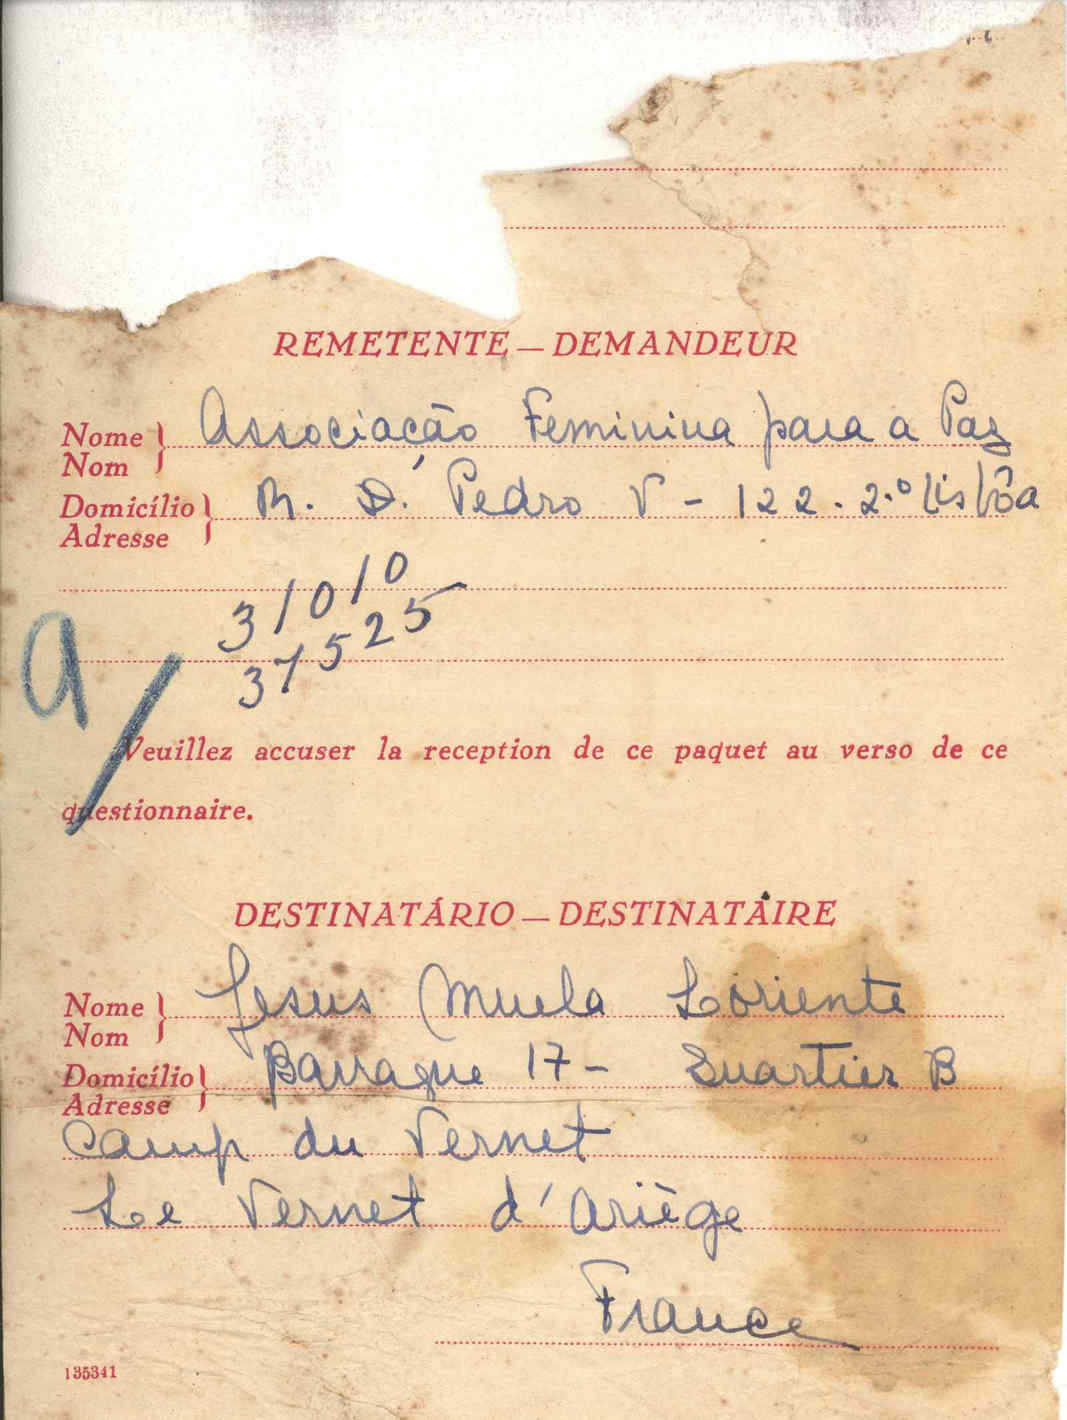 REMETENTE — DEMANDEUR
Nome } Associação Feminina para a Paz
Nom
Domicílio } R. D. Pedro V - 122 . 2.º Lisbôa
Adresse
31010
37525
a/
Veuillez accuser la reception de ce paquet au verso de ce
questionnaire.
DESTINATÁRIO — DESTINATAIRE
Nome } Jesus Muela Loriente
Nom
Domicílio } Barraque 17 - Quartier B
Adresse
Camp du Vernet
Le Vernet d'Ariège
France
135341